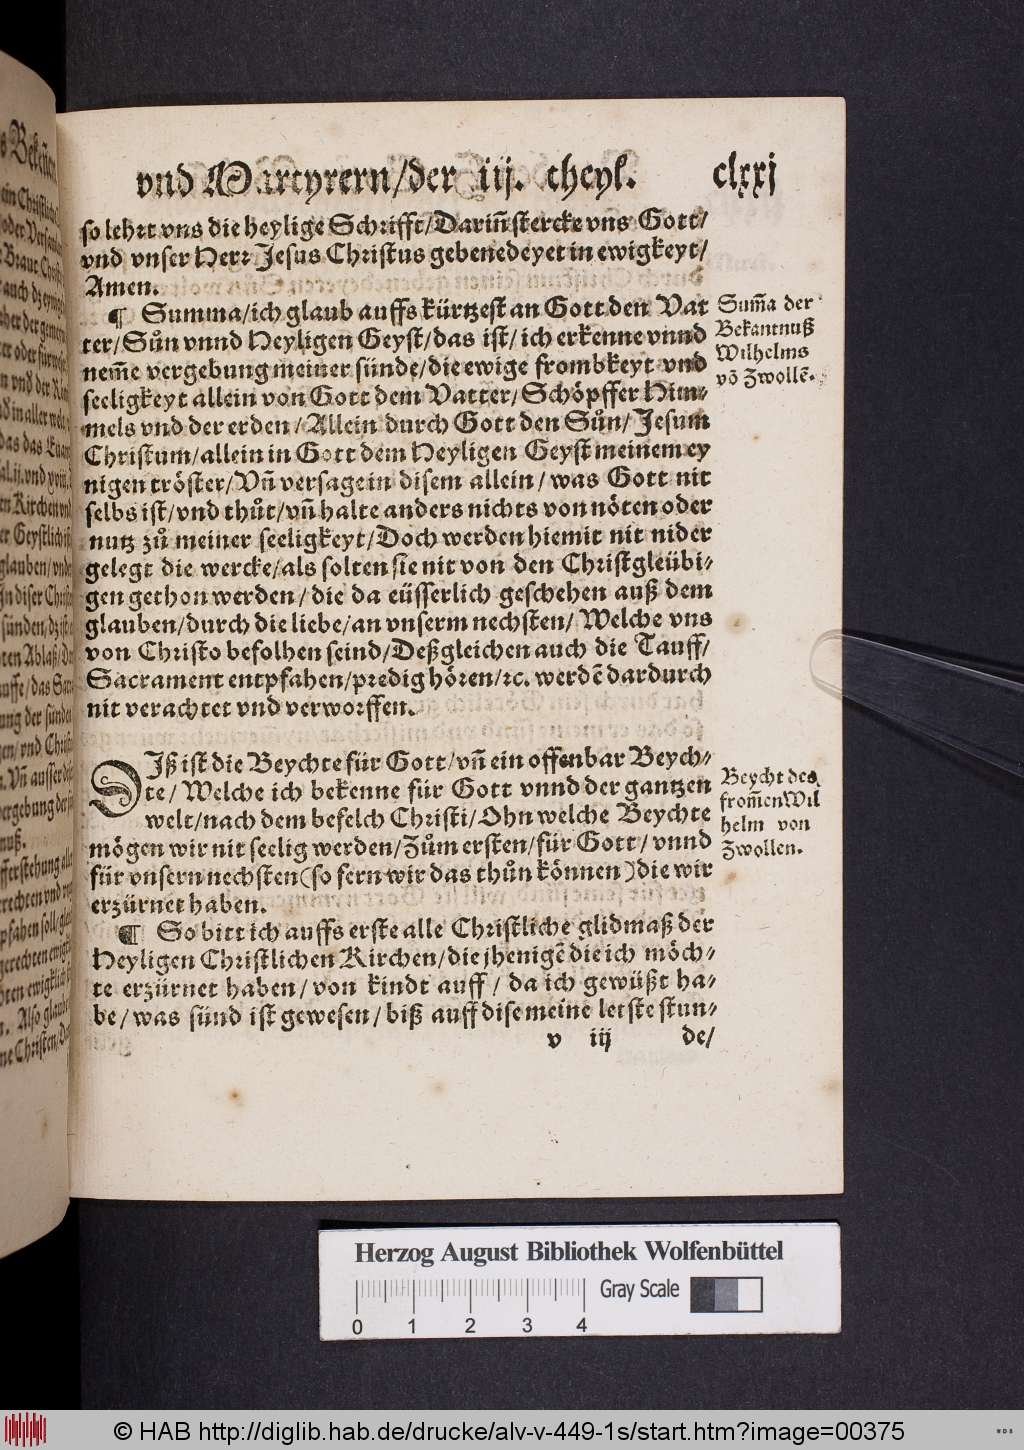 vnd Martyrern/der iij. theyl. clxxj
so lehrt vns die heylige Schrifft/Dariñ stercke vns Gott/
vnd vnser Herr Jesus Christus gebenedeyet in ewigkeyt/
Amen.
¶ Summa/ich glaub auffs kürtzest an Gott den Vat
ter/Sůn vnnd Heyligen Geyst/das ist/ich erkenne vnnd
nem̃e vergebung meiner sünde/die ewige frombkeyt vnd
seeligkeyt allein von Gott dem Vatter/Schöpffer Him-
mels vnd der erden/Allein durch Gott den Sůn/Jesum
Christum/allein in Gott dem Heyligen Geyst meinem ey
nigen tröster/Vñ versage in disem allein/was Gott nit
selbs ist/vnd thůt/vñ halte anders nichts von nöten oder
nutz zů meiner seeligkeyt/Doch werden hiemit nit nider
gelegt die wercke/als solten sie nit von den Christgleübi-
gen gethon werden/die da eüsserlich geschehen auß dem
glauben/durch die liebe/an vnserm nechsten/Welche vns
von Christo befolhen seind/Deßgleichen auch die Tauff/
Sacrament entpfahen/predig hören/ꝛc. werdẽ dardurch
nit verachtet vnd verworffen.
Sum̃a der
Bekantnuß
Wilhelms
võ Zwollẽ.
DIß ist die Beychte für Gott/vñ ein offenbar Beych-
te/Welche ich bekenne für Gott vnnd der gantzen
welt/nach dem befelch Christi/Ohn welche Beychte
mögen wir nit seelig werden/Zům ersten/für Gott/vnnd
für vnsern nechsten(so fern wir das thůn können)die wir
erzürnet haben.
Beycht des
from̃en Wil
helm von
Zwollen.
¶ So bitt ich auffs erste alle Christliche glidmaß der
Heyligen Christlichen Kirchen/die jhenigẽ die ich möch-
te erzürnet haben/von kindt auff/da ich gewüßt ha-
be/was sünd ist gewesen/biß auff dise meine letste stun-
v iij de/
Herzog August Bibliothek Wolfenbüttel
Gray Scale
0 1 2 3 4
© HAB http://diglib.hab.de/drucke/alv-v-449-1s/start.htm?image=00375